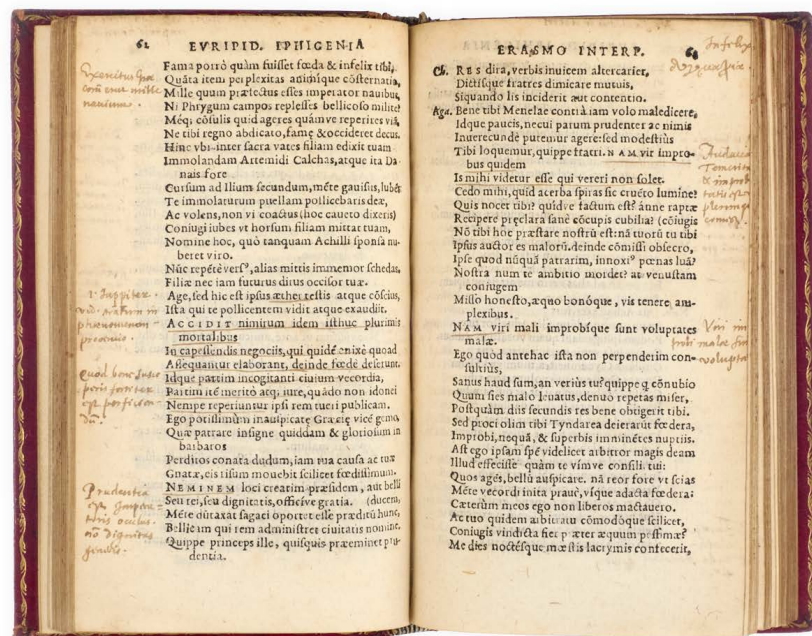 62
EVRIPID. IPHIGENIA
Fama porrò quàm fuisset fœda & infelix tibi,
Quāta item perplexitas animique cōsternatio,
Mille quum præfectus esses imperator nauibus,
Ni Phrygum campos replesses bellicoso milite?
Méq; cōsulis quid ageres quámve reperires viā,
Ne tibi regno abdicato, famę & occideret decus.
Hinc vbi inter sacra vates filiam edixit tuam
Immolandam Artemidi Calchas, atque ita Da
nais fore
Cursum ad Ilium secundum, mēte gauisus, lubēs
Te immolaturum puellam pollicebaris deæ,
Ac volens, non vi coactus (hoc caueto dixeris)
Coniugi iubes vt horsum filiam mittat tuam,
Nomine hoc, quò tanquam Achilli sponsa nu
beret viro.
Nūc repētè versꝰ, alias mittis immemor schedas,
Filiæ nec iam futurus dirus occisor tuæ.
Age, sed hic est ipsus æther testis atque cōscius,
Ista qui te pollicentem vidit atque exaudiit.
ACCIDIT nimirum idem isthuc plurimis
mortalibus
In capessendis negociis, qui quidē enixè quoad
Assequantur elaborant, deinde fœdè deserunt.
Idque partim incogitanti ciuium vecordia,
Partim itē meritò atq; iure, quādo non idonei
Nempe reperiuntur ipsi rem tueri publicam.
Ego potissimùm inauspicatę Græcię vicē gemo,
Quæ patrare insigne quiddam & gloriosum in
barbaros
Perditos conata dudum, iam tua causa ac tuæ
Gnatæ, eis risum mouebit scilicet fœdissimum.
NEMINEM loci crearim præsidem, aut belli
Seu rei, seu dignitatis, officíve gratia. (ducem,
Mēte dūtaxat sagaci oportet esse prædītū hunc,
Bellicam qui rem administret ciuitatis nomine.
Quippe princeps ille, quisquis præeminet pru
dentia.
Exercitus
mille
nauium.
1. Iuppiter
Quod bene
Prudentia
dignitas
ERASMO INTERP.
Infelix
Ch. RES dira, verbis inuicem altercarier,
Dictísque fratres dimicare mutuis,
Siquando lis inciderit aut contentio.
Aga. Bene tibi Menelae contrà iam volo maledicere,
Idque paucis, necui parum prudenter ac nimis
Inuerecundè putemur agere: sed modestiùs
Tibi loquemur, quippe fratri. NAM vir impro-
bus quidem
Is mihi videtur esse qui vereri non solet.
Cedo mihi, quid acerba spiras sic cruēto lumine?
Quis nocet tibi? quídve factum est? ánne raptæ
Recipere pręclara sanè cōcupis cubilia? (cōiugis
Nō tibi hoc præstare nostrū est: nā tuorū tu tibi
Ipsus auctor es malorū. deinde cōmissi obsecro,
Ipse quod nūquā patrarim, innoxiꝰ pœnas luā?
Nostra num te ambitio mordet? at venustam
coniugem
Misso honesto, æquo bonóque, vis tenere am-
plexibus.
NAM viri mali improbíque sunt voluptates
malæ.
Ego quòd antehac ista non perpenderim con-
sultius,
Sanus haud sum, an verius tu? quippe q cōnubio
Quum sies malo leuatus, denuo repetas miser,
Postquàm diis secundis res bene obtigerit tibi.
Sed proci olim tibi Tyndarea deierarūt fœdera,
Improbi, nequā, & superbis imminētes nuptiis.
Ast ego ipsam spē videlicet arbitror magis deam
Illud effecisse quàm te vímve consilii tui:
Quos agēs, bellū auspicare. nā reor fore vt scias
Mēte vecordi inita prauè, vique adacta fœdera:
Cæterùm meos ego non liberos mactauero.
Ac tuo quidem arbitratu cōmodòque scilicet,
Coniugis vindicta fiet præter æquum pessimæ?
Me dies noctésque mœstis lacrymis confecerit,
Audacia
Temeritas
& improbitas
Viri improbi malae sunt
voluptates